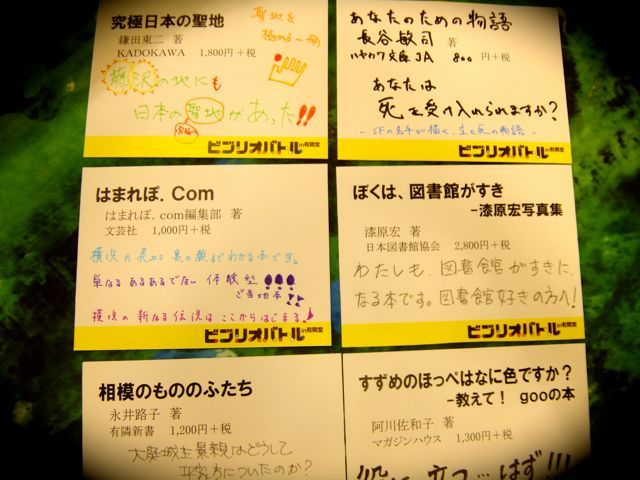 究極日本の聖地
鎌田東二 著
KADOKAWA 1,800円+税
聖地を
極める一冊
藤沢の地にも
日本の聖地があった!!
究極の
ビブリオバトル in有隣堂
あなたのための物語
長谷敏司 著
ハヤカワ文庫JA 800円+税
あなたは
死を受け入れられますか?
-SFの名手が描く、生と死の物語-
ビブリオバトル in有隣堂
はまれぽ.Com
はまれぽ.com編集部 著
文芸社 1,000円+税
横浜の表から裏の顔までわかる本です。
単なるあるあるでない 体験型
ご当地本
横浜の新なる伝説はここからはじまる
ビブリオバトル in有隣堂
ぼくは、図書館がすき
-漆原宏写真集
漆原宏 著
日本図書館協会 2,800円+税
わたしも、図書館がすきに
なる本です。図書館好きの方へ!
ビブリオバトル in有隣堂
相模のもののふたち
永井路子 著
有隣新書 1,200円+税
大庭城主景親はどうして
平家方についたのか?
すずめのほっぺはなに色ですか?
-教えて! gooの本
阿川佐和子 著
マガジンハウス 1,300円+税
役に立つ…はず!!!